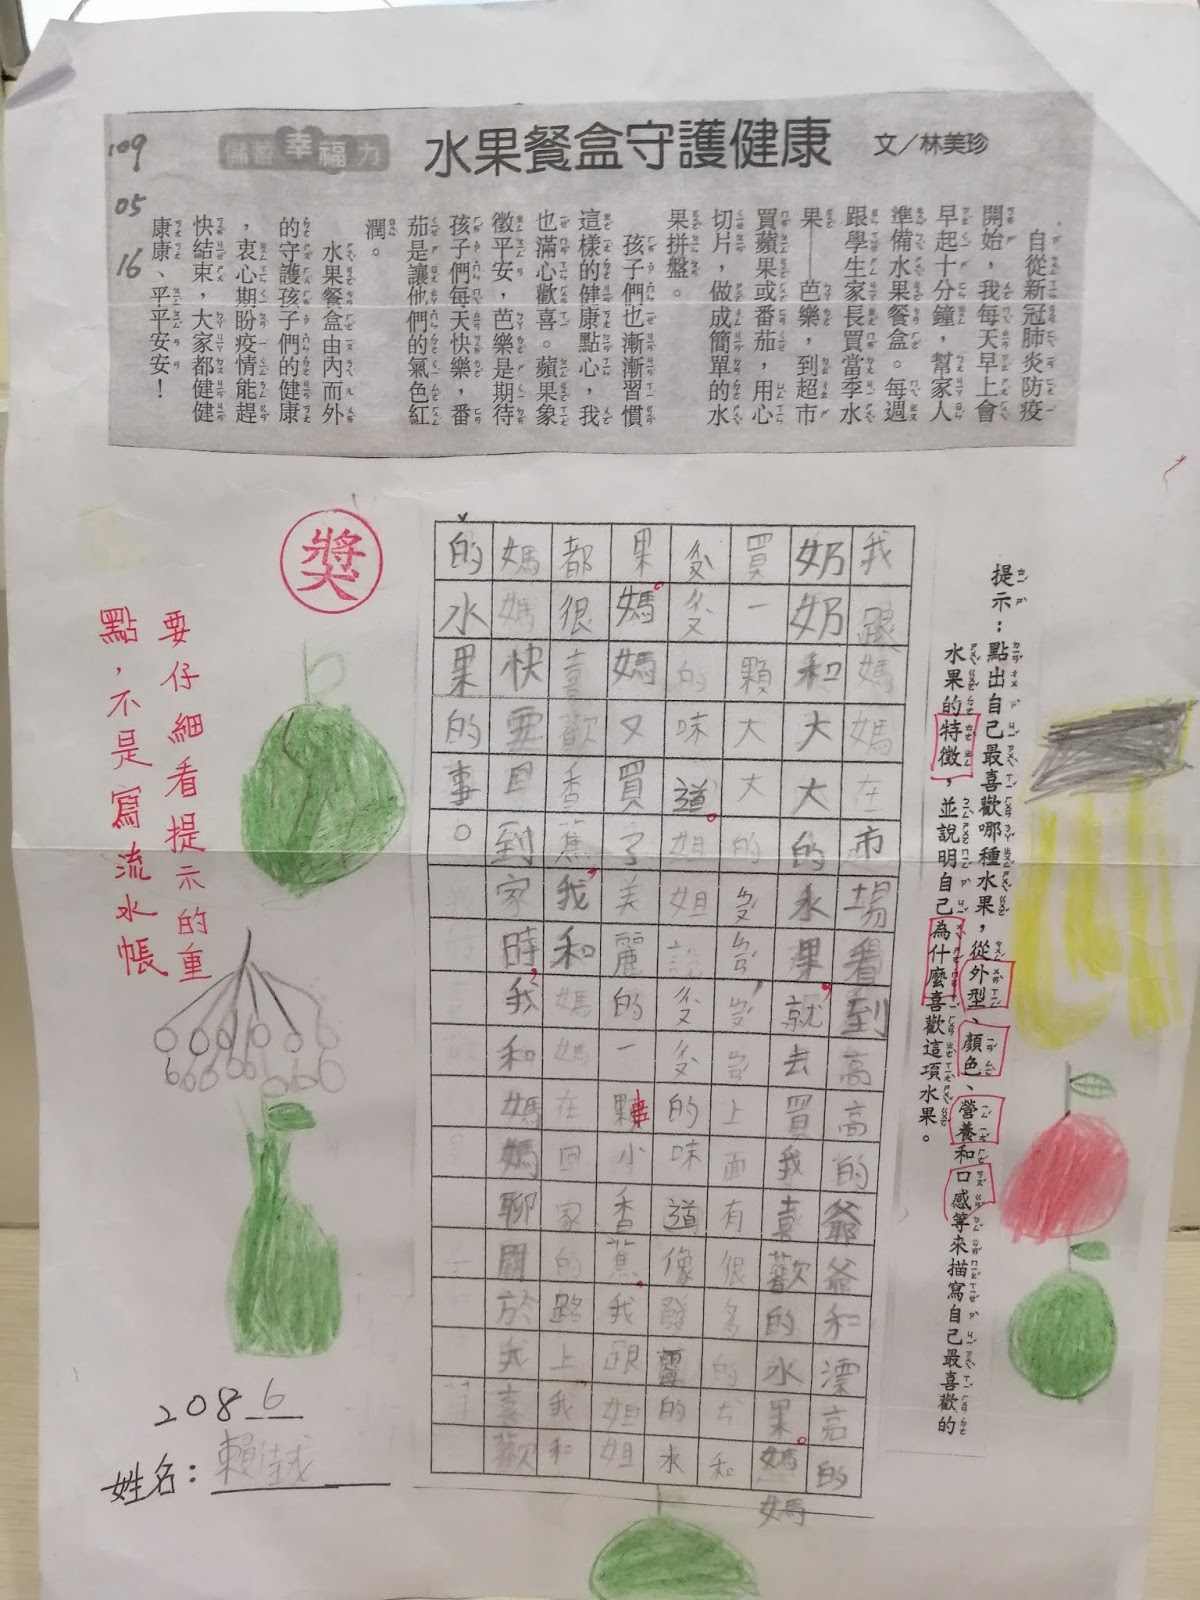 109
05
16
儲蓄幸福力
水果餐盒守護健康
文／林美珍
自從新冠肺炎防疫
開始，我每天早上會
早起十分鐘，幫家人
準備水果餐盒。每週
跟學生家長買當季水
果——芭樂，到超市
買蘋果或番茄，用心
切片，做成簡單的水
果拼盤。
孩子們也漸漸習慣
這樣的健康點心，我
也滿心歡喜。蘋果象
徵平安，芭樂是期待
孩子們每天快樂，番
茄是讓他們的氣色紅
潤。
水果餐盒由內而外
的守護孩子們的健康
，衷心期盼疫情能趕
快結束，大家都健健
康康、平平安安！
提示：點出自己最喜歡哪種水果，從外型、顏色、營養和口感等來描寫自己最喜歡的
水果的特徵，並說明自己為什麼喜歡這項水果。
我跟媽媽在市場看到高高的爺爺和漂高的
奶奶和大大的水果，就去買我喜歡的水果。媽媽
買一顆大大的上面有很多的和
的味道。姐姐說的味道像發霉的水
果。媽媽又買了美麗的一小香蕉。我跟姐姐
都很喜歡香蕉，我和媽媽在回家的路上，我和
媽媽快要回到家時，我和媽媽聊關於我喜歡
的水果的事。
獎
要仔細看提示的重
點，不是寫流水帳
208 6
姓名：賴